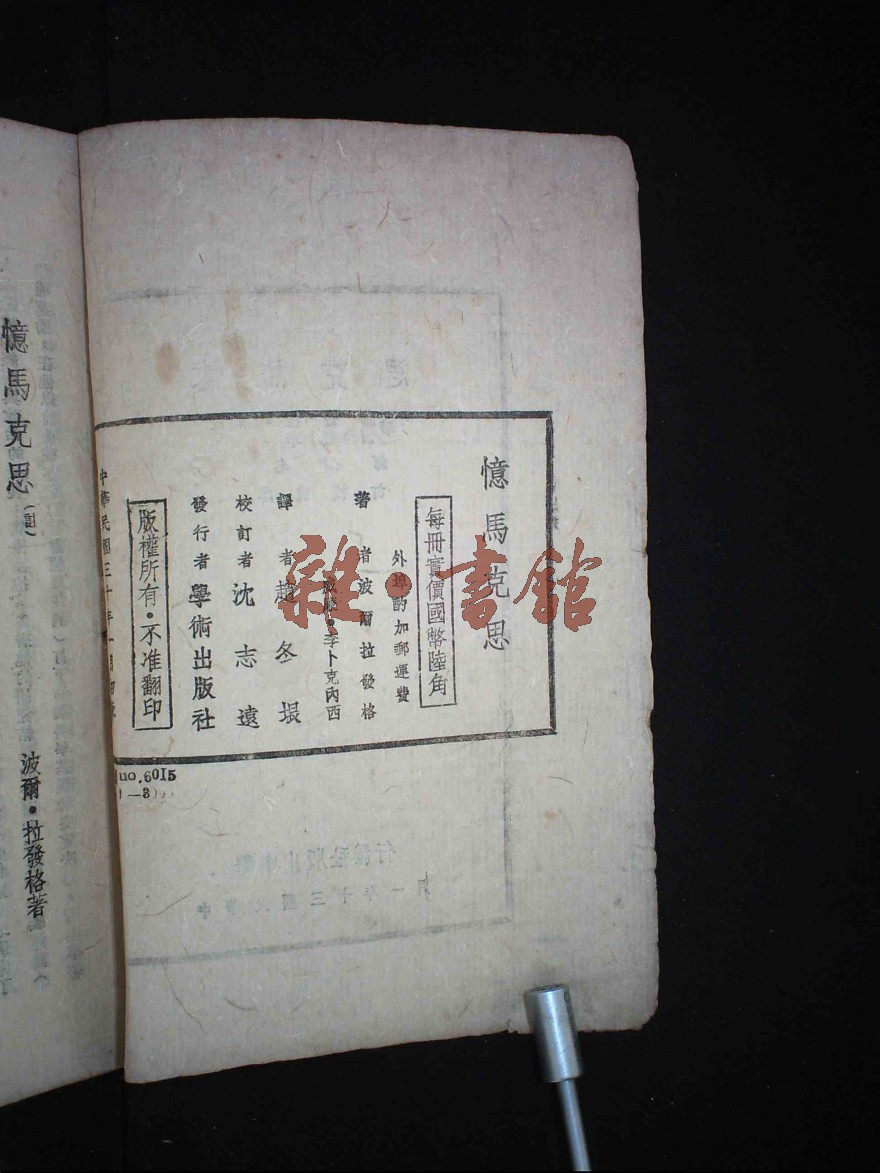 憶馬克思
每冊實價國幣陸角
外埠酌加郵運費
著者波爾拉發格
威廉・李卜克內西
譯者趙冬垠
校訂者沈志遠
發行者學術出版社
版權所有・不准翻印
中華民國三十年一月初版
No.6015
(1—3)
雜・書館
憶馬克思
波爾・拉發格著